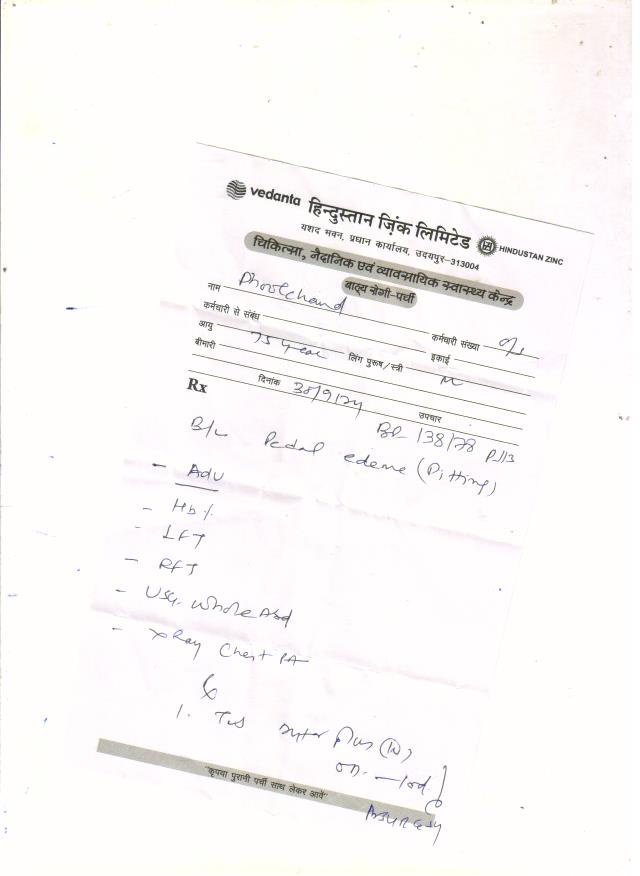 vedanta हिन्दुस्तान ज़िंक लिमिटेड HINDUSTAN ZINC
यशद भवन, प्रधान कार्यालय, उदयपुर-313004
चिकित्सा, नैदानिक एवं व्यावसायिक स्वास्थ्य केन्द्र
बाह्य रोगी-पर्ची
नाम Phoolchand कर्मचारी संख्या
कर्मचारी से संबंध इकाई
आयु 75 year लिंग पुरूष/स्त्री M
बीमारी
Rx दिनांक 30/9/24 उपचार
BP 138/78
B/L Pedal edeme (Pitting)
- Adv
- Hb%
- LFT
- RFT
- USG. Whole Abd
- xRay Chest PA
1. Tab plus
on. - 10d.
"कृपया पुरानी पर्ची साथ लेकर आयें"